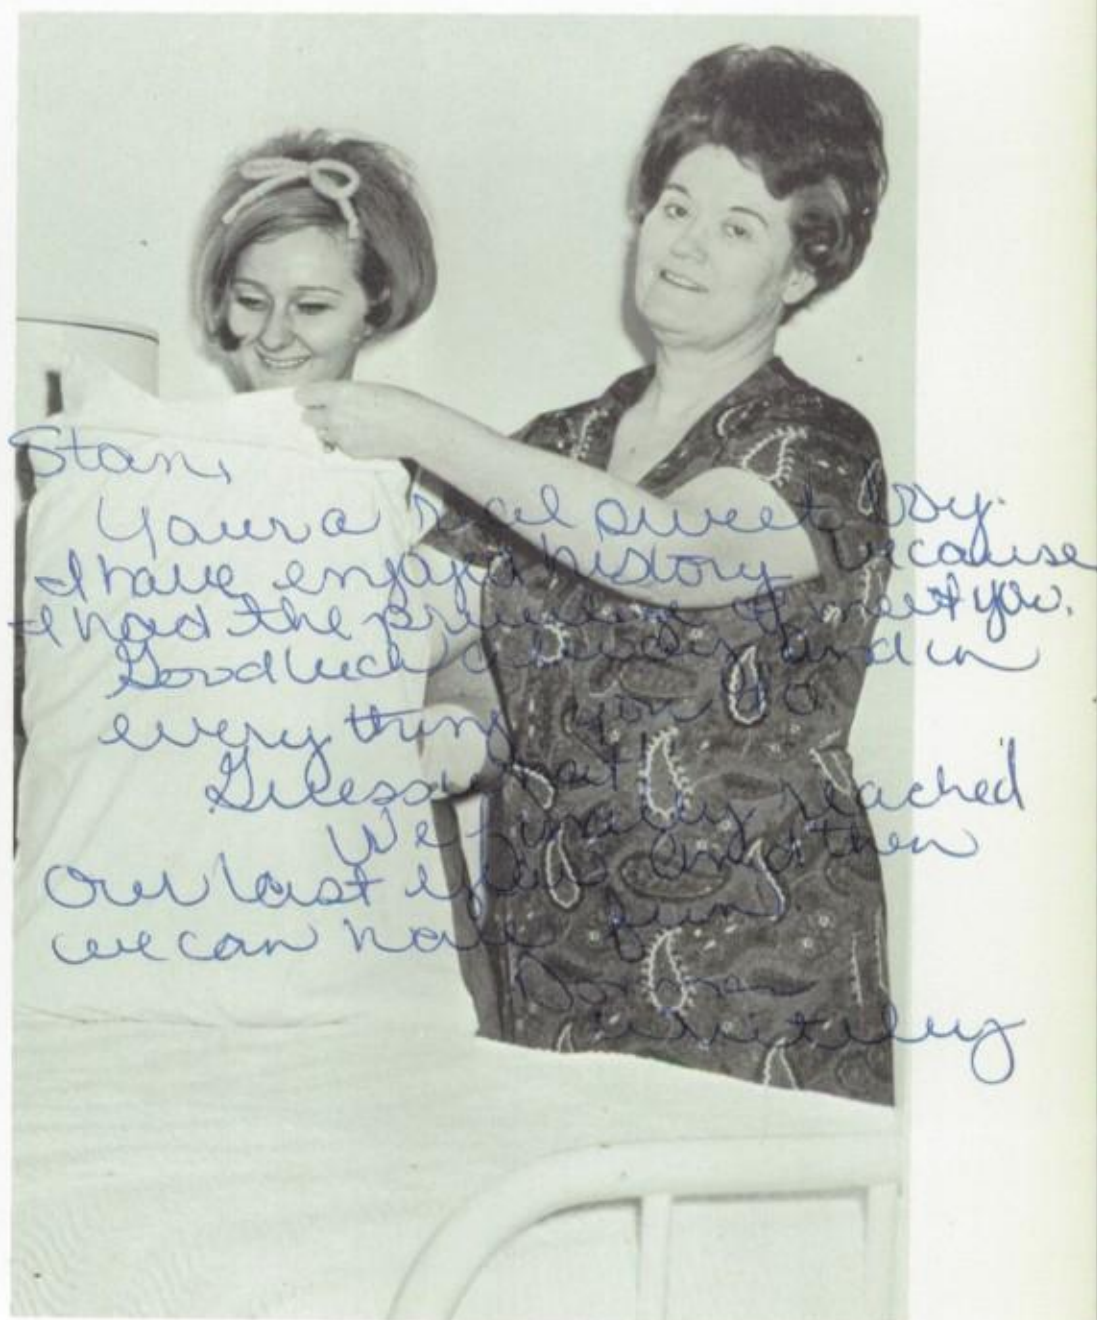 Stan,
Your a real sweet boy.
I have enjoyed history because
I had the privilege of meet you.
Good luck always and in
every thing you do.
Guess what!!
We finally reached
Our last year and then
we can have fun.
Whitley